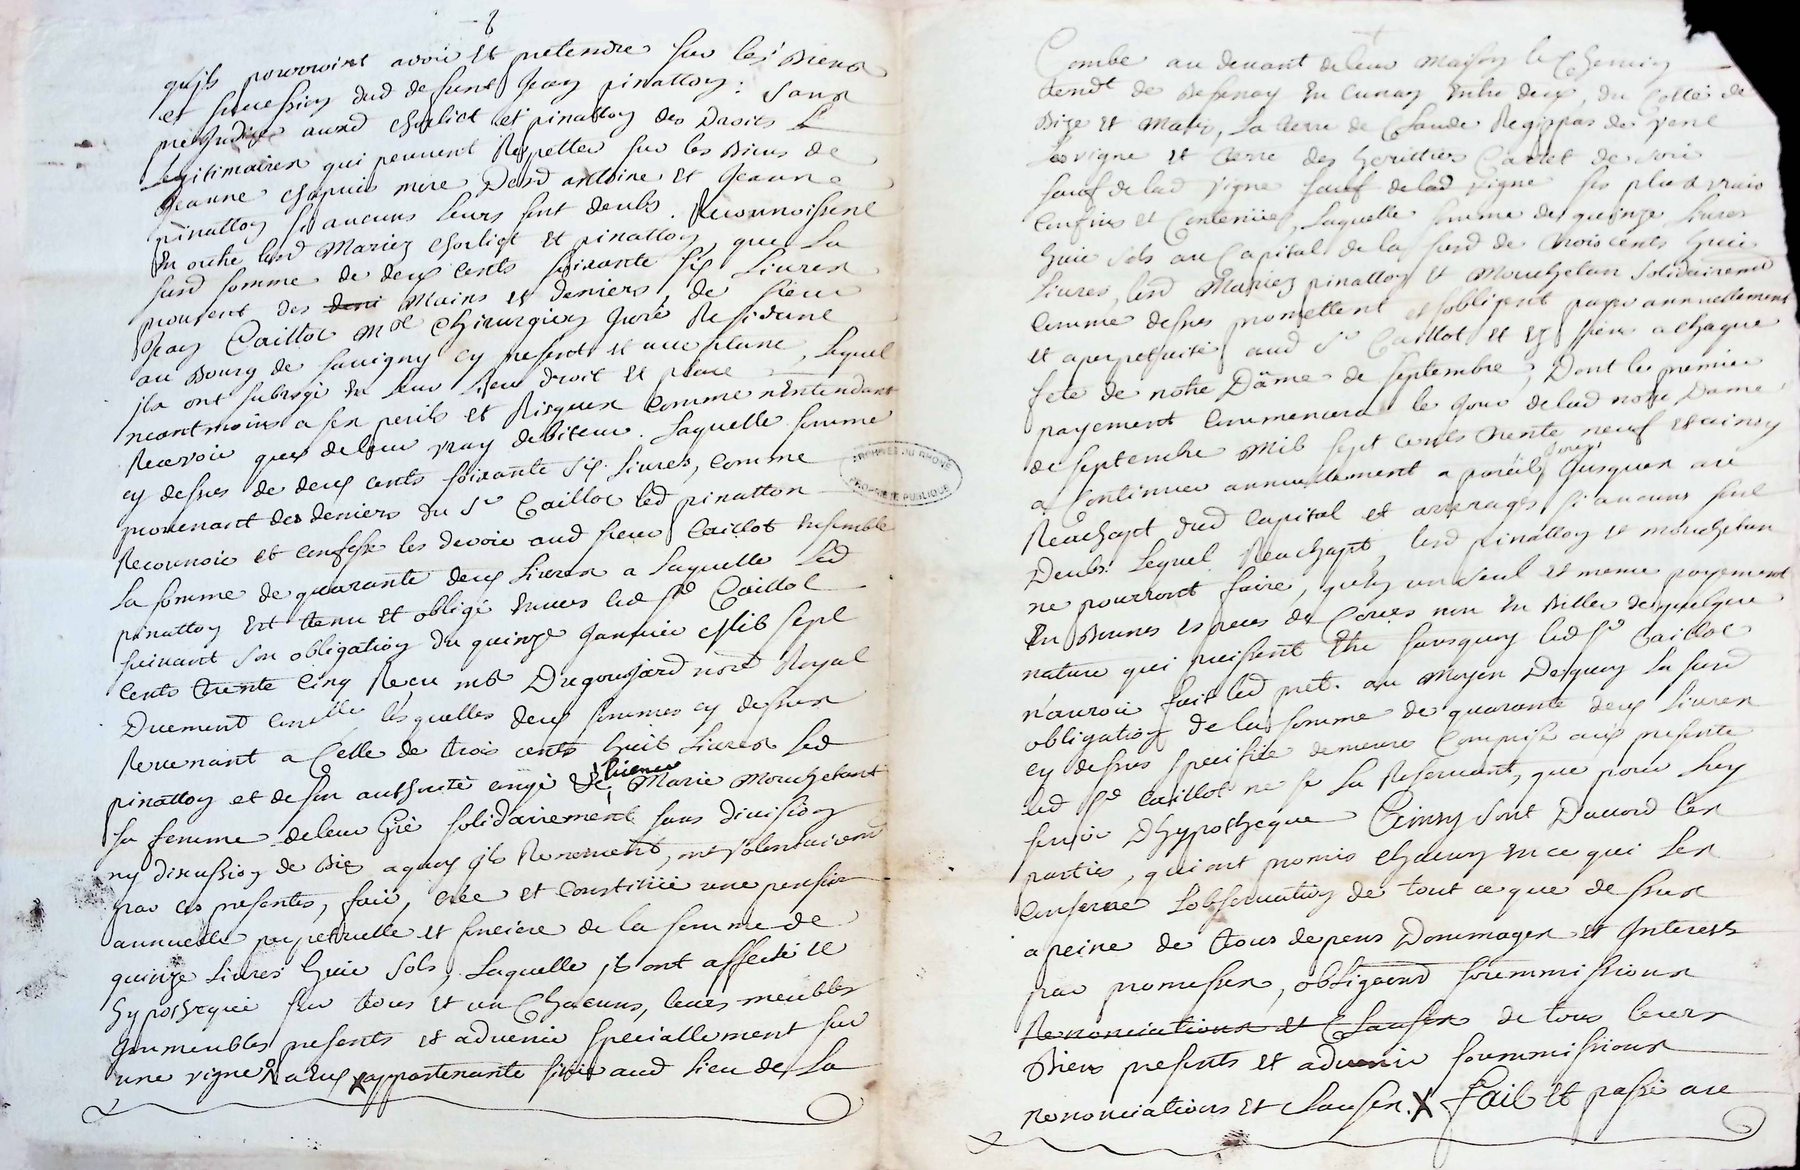 8
qu'ils pourroint avoir et pretendre sur les Biens
et succession dud deffunt Jean pinatton : sans
prejudice ausd Chorliet et pinatton des Droits
Legitimaires qui peuvent Repetter sur les Biens de
Jeanne Chapuis mere Desd antoine et Jeanne
pinatton si aucuns Leurs sont deubs. Reconnoissent
En outre lesd Mariez Chorliet et pinatton, que La
susd somme de deux Cents soixante six Livres
provient des deni Mains et deniers de sieur
Jean Caillot Mre Chirurgien Juré Residant
au Bourg de savigny cy present et acceptant, Lequel
ils ont subrogé En leur Lieu droit et place
neantmoins a ses perils et Risques Comme n'Entendant
Recevoir que de leur vray debiteur. Laquelle somme
cy dessus de deux cents soixante six Livres, comme
provenant des deniers du Sr Caillot led pinatton
Reconnoit et confesse les devoir aud sieur Caillot Ensemble
La somme de quarante deux Livres a Laquelle Led
pinatton Est tenu et obligé Envers led Sr Caillot
suivant son obligation du quinze Janvier Mil sept
Cents trente Cinq Reçu Me Dugoujard notre Royal
Duement Conllée lesquelles deux sommes cy dessus
Revenant a Celle de trois cents huit Livres Led
pinatton et de son authorité Marie Mouchetant
sa femme de leur Gré solidairement sans division
ny discussion de Bien a quoy ils Renoncent, ont volontairemt
par ces presentes, fait, créé et Constitüé une pension
annuelle perpetuelle et fonciere de la somme de
quinze Livres huit sols, Laquelle ils ont affecté et
hypothequé sur tous et un Chacuns, leurs meubles
Immeubles presents et advenir speciallement sur
une vigne a eux appartenante sise aud Lieu de La
Combe au devant de leur Maison le Chemin
tendt de Bessenay En Cunay Entre deux, du Cotté de
Bize et Matin, La terre de Claude Regippas de vent
Les vigne et terre des heritiers Cadet de soir
sauf de lad vigne sauf de lad vigne ses plus vrais
Confins et Contenües, Laquelle somme de quinze Livres
huit sols au Capital de la susd de trois cents huit
Livres, lesd Mariez pinatton et Mouchetan solidairemt
Comme dessus promettent et s'obligent payer annuellement
et a perpetuité aud Sr Caillot et aux siens a chaque
fete de notre Däme de septembre, Dont le premier
payement Commencera le Jour de lad notre Dame
de septembre Mil sept Cents trente neuf et ainsy
a Continuer annuellement a pareils Jours Jusques au
Reachapt dud Capital et arrerages si aucuns sont
Deubs Lequel Reachapt, lesd pinatton et mouchetan
ne pourront faire, qu'En un seul et meme payement
En Bonnes Especes de Cours non En Billet de quelque
nature qui puissent Etre sans quoy led Sr Caillot
n'auroit fait led pret. au Moyen Dequoy La susd
obligation de la somme de quarante deux Livres
cy dessus specifiée demeure Comprise aux presente
led Sr Caillot ne se La Reservant, que pour Luy
servir D'hypotheque Cainsy sont Daccord Les
parties, qui ont promis Chacun En ce qui Les
Conserne L'observation de tout ce que de ssus
a peine de tous depens Dommages et Interets
par promesses, obligaond soummissions
Renonciations et Clauses de tous leurs
Biens presents et advenir soummissions
renonciations et Clauses. X fait et passé au
ARCHIVES DU RHONE
PROPRIÉTÉ PUBLIQUE